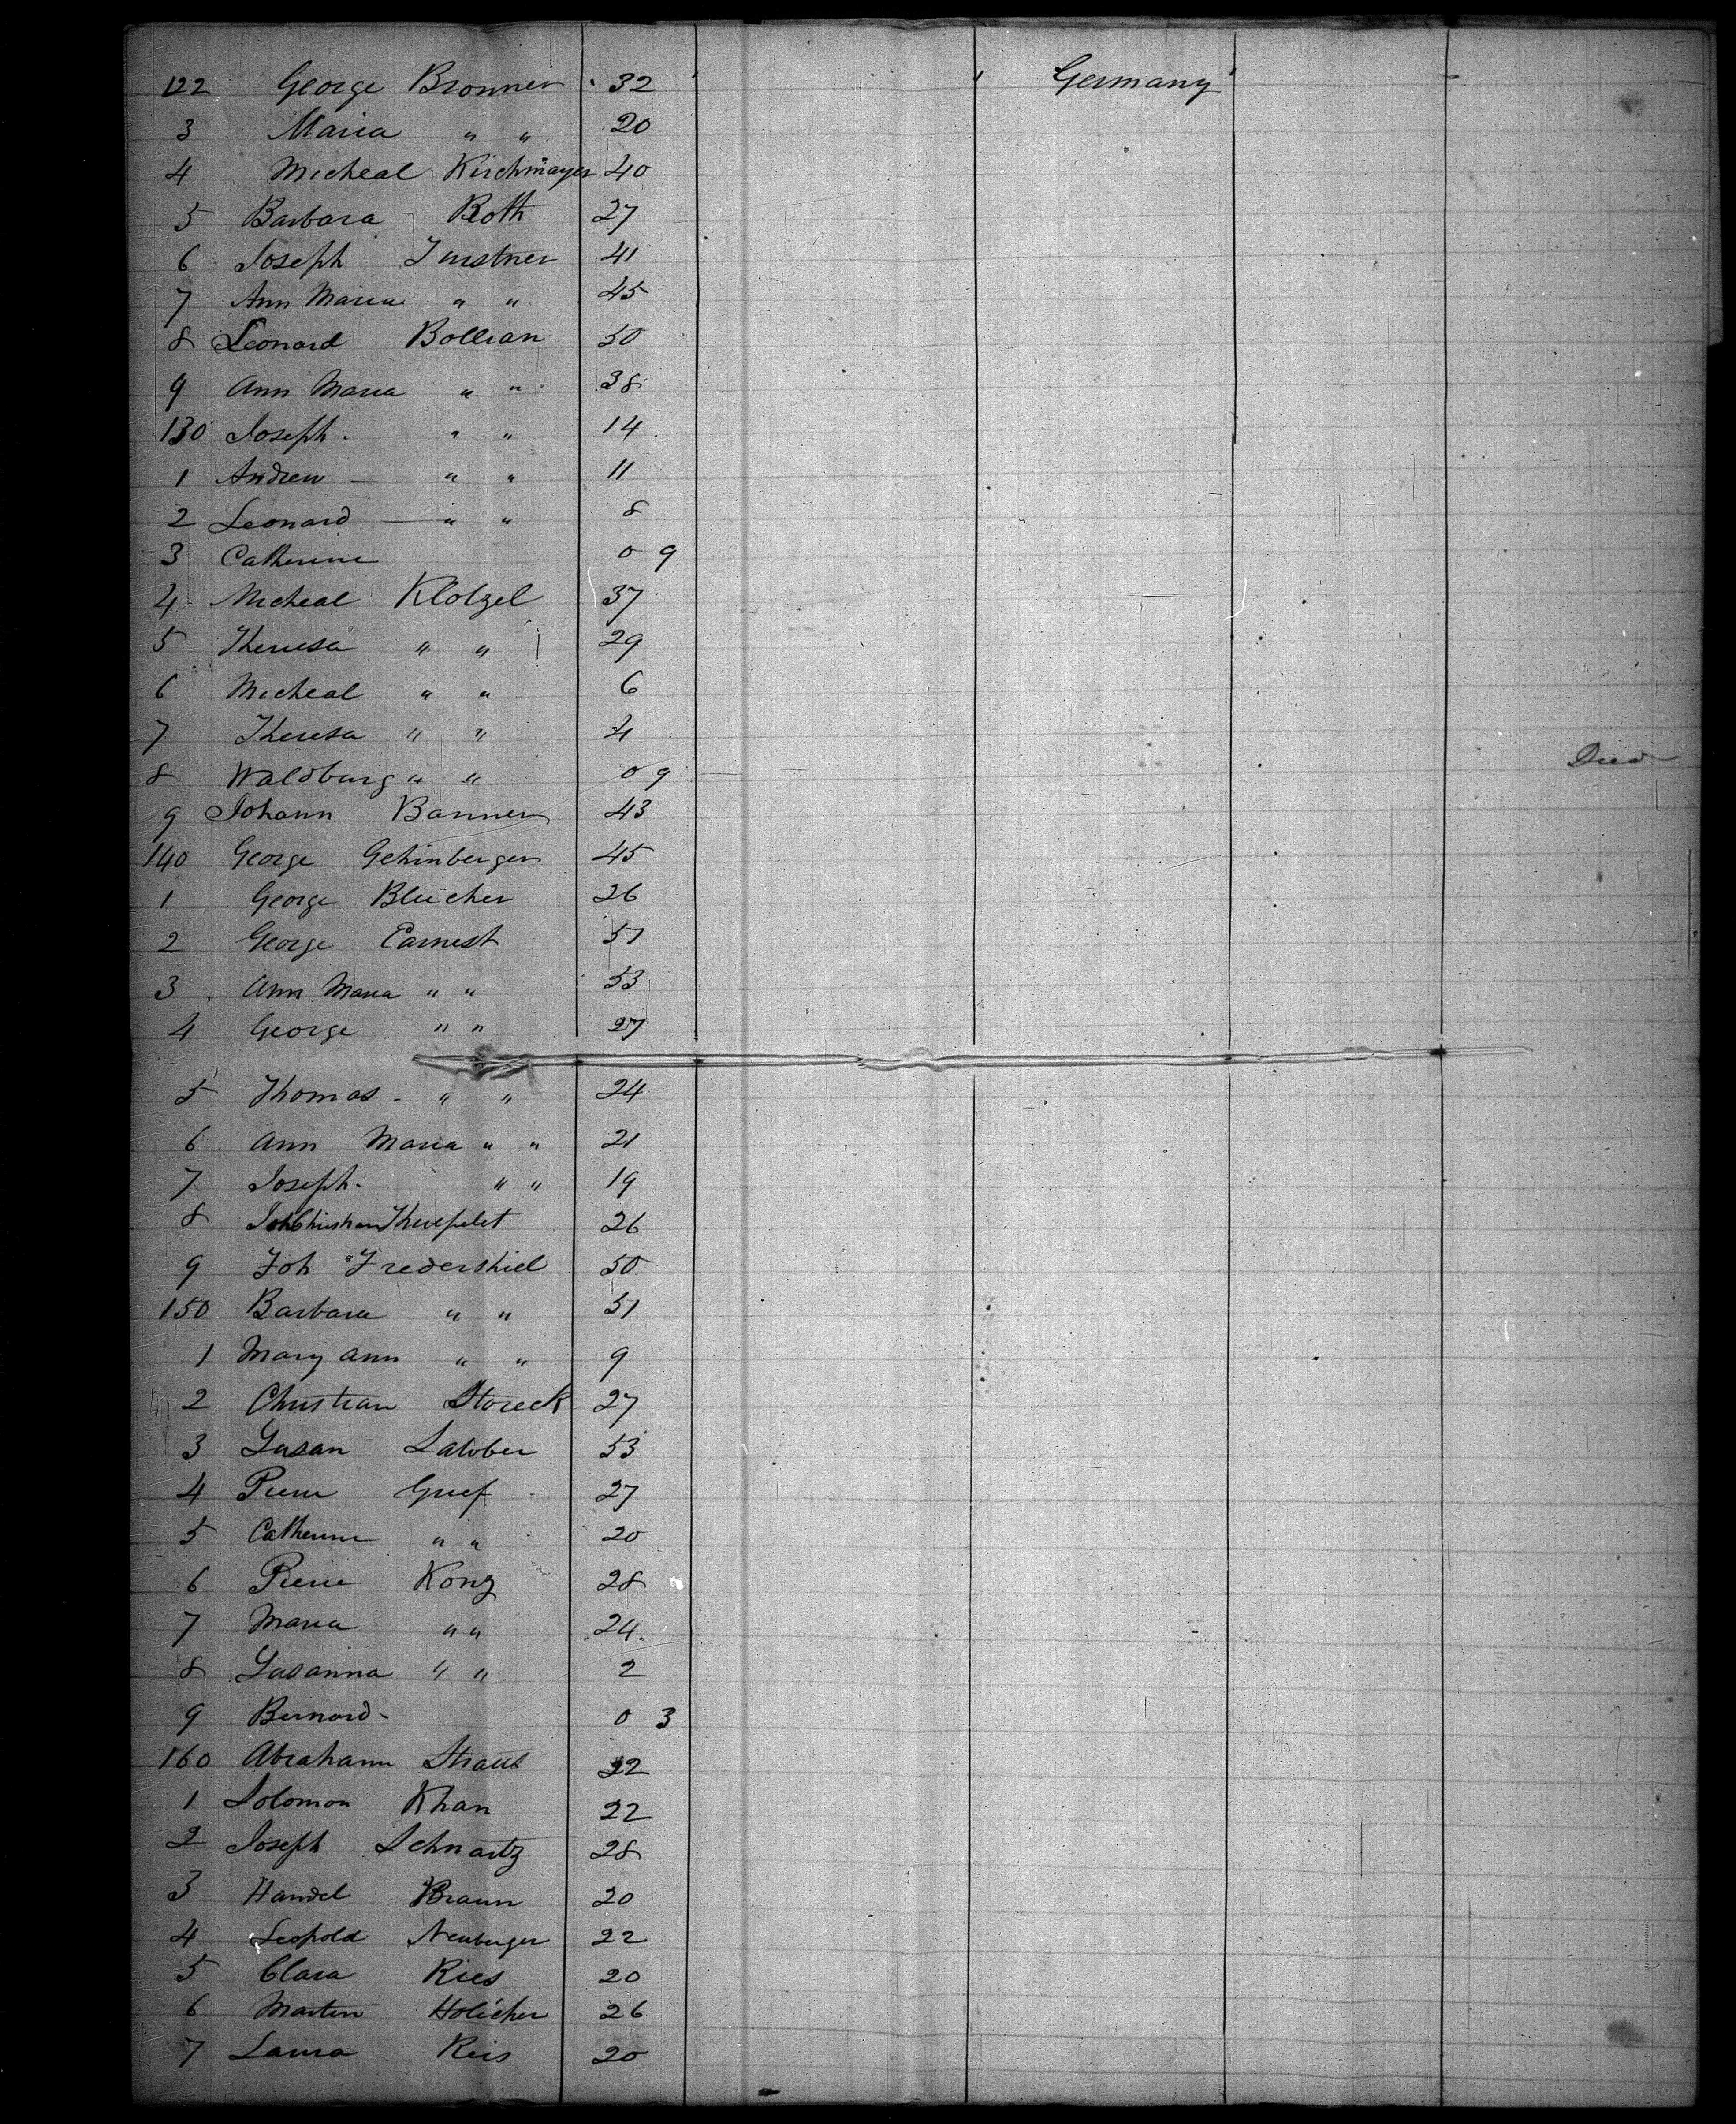 122 George Bronner 32 Germany
3 Maria " " 20
4 Micheal Kirchmayer 40
5 Barbara Roth 27
6 Joseph 41
7 Ann Maria " " 45
8 Leonard Bollian 50
9 Ann Maria " " 38
130 Joseph " " 14
1 Andrew " " 11
2 Leonard " " 8
3 Catherine 0 9
4 Micheal Klotzel 37
5 Theresa " " 29
6 Micheal " " 6
7 Theresa " " 4
8 Waldburg " " 0 9 Died
9 Johann Banner 43
140 George Gehinberger 45
1 George Bleicher 26
2 George Earnest 57
3 Ann Maria " " 53
4 George " " 27
5 Thomas " " 24
6 Ann Maria " " 21
7 Joseph " " 19
8 Joh Christian 26
9 Joh Frederskiel 50
150 Barbara " " 51
1 Mary Ann " " 9
2 Christian Storeck 27
3 Susan Latober 53
4 Pierre Grief 27
5 Catherine " " 20
6 Pierre Konz 28
7 Maria " " 24
8 Susanna " " 2
9 Bernard 0 3
160 Abraham Straus 22
1 Solomon Khan 22
2 Joseph Schnartz 28
3 Handel Braun 20
4 Leopold Neuberger 22
5 Clara Ries 20
6 Martin Holicher 26
7 Laura Reis 20